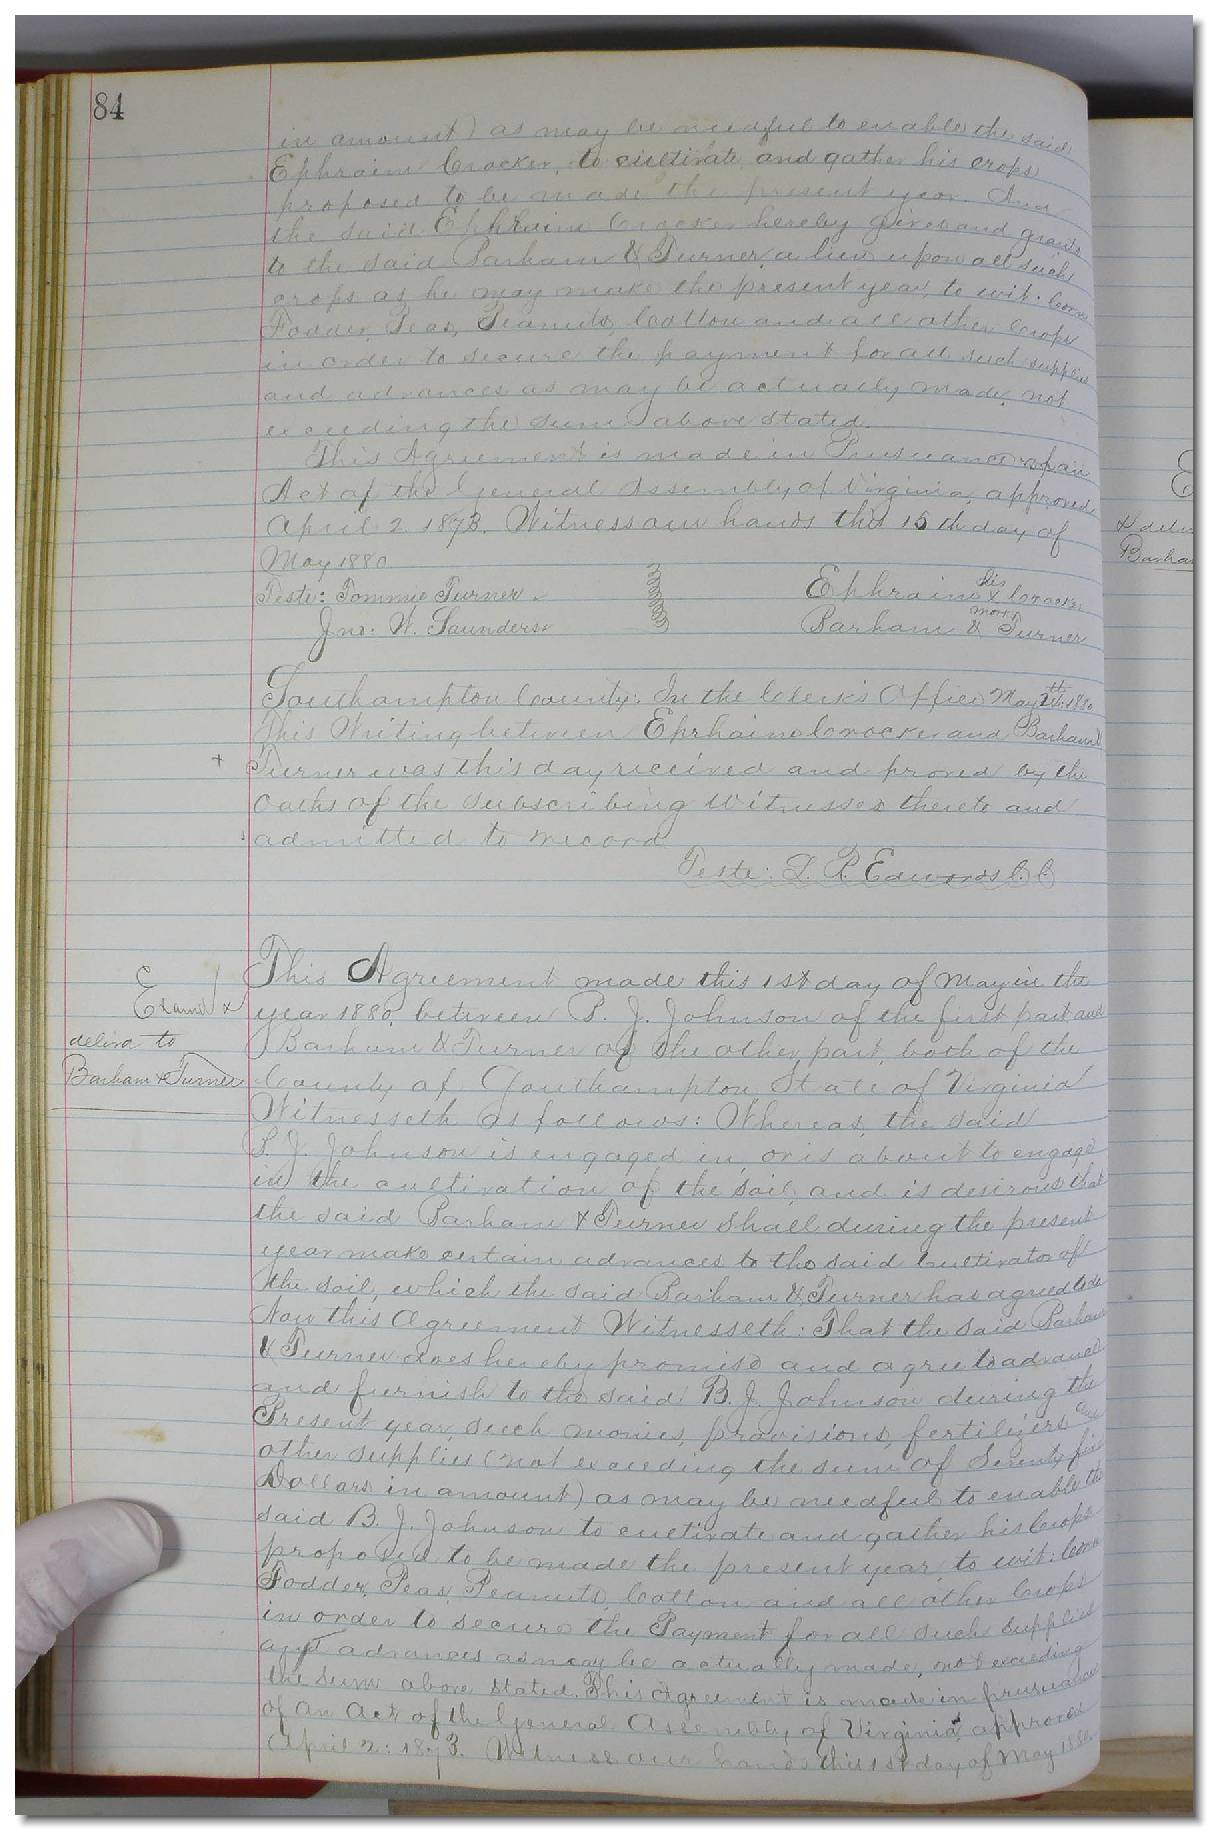 84
in amount) as may be needful to enable the said
Ephraim Crocker, to cultivate and gather his crops
proposed to be made the present year. And
the said Ephraim Crocker hereby gives and grants
to the said Barham & Turner, a lien upon all such
crops as he may make the present year, to wit: Corn
Fodder, Peas, Peanuts, Cotton and all other Crops
in order to secure the payment for all such supplies
and advances as may be actually made, not
exceeding the sum above stated.
This Agreement is made in Pursuance of an
Act of the General Assembly of Virginia, approved
April 2 1873. Witness our hands this 15th day of
May 1880
Teste: Tommie Turner
Ephraim his x mark Crocker
Jno. W. Saunders
Barham & Turner
Southampton County: In the Clerk's Office May 1880
This Writing between Ephraim Crocker and Barham &
+ Turner was this day received and proved by the
Oaths of the subscribing Witnesses thereto and
admitted to record
Teste: L. R. Edwards C. C.
Examd &
delivd to
Barham & Turner
This Agreement made this 1st day of May in the
year 1880, between B. J. Johnson of the first part and
Barham & Turner of the other part, both of the
County of Southampton State of Virginia
Witnesseth as follows: Whereas, the said
B. J. Johnson is engaged in, or is about to engage
in the cultivation of the soil, and is desirous that
the said Barham & Turner shall during the present
year make certain advances to the said Cultivator of
the soil, which the said Barham & Turner has agreed to do
Now this Agreement Witnesseth: That the said Barham
& Turner does hereby promise and agree to advance
and furnish to the said B. J. Johnson during the
Present year, such monies, provisions, fertilizers and
other supplies (not exceeding the sum of Seventy five
Dollars in amount) as may be needful to enable the
said B. J. Johnson to cultivate and gather his Crops
proposed to be made the present year, to wit: Corn
Fodder, Peas, Peanuts, Cotton and all other Crops
in order to secure the Payment for all such Supplies
and advances as may be actually made, not exceeding
the sum above stated. This Agreement is made in prusuance
of an Act of the General Assembly of Virginia, approved
April 2: 1873. Witness our hands this 1st day of May 1880